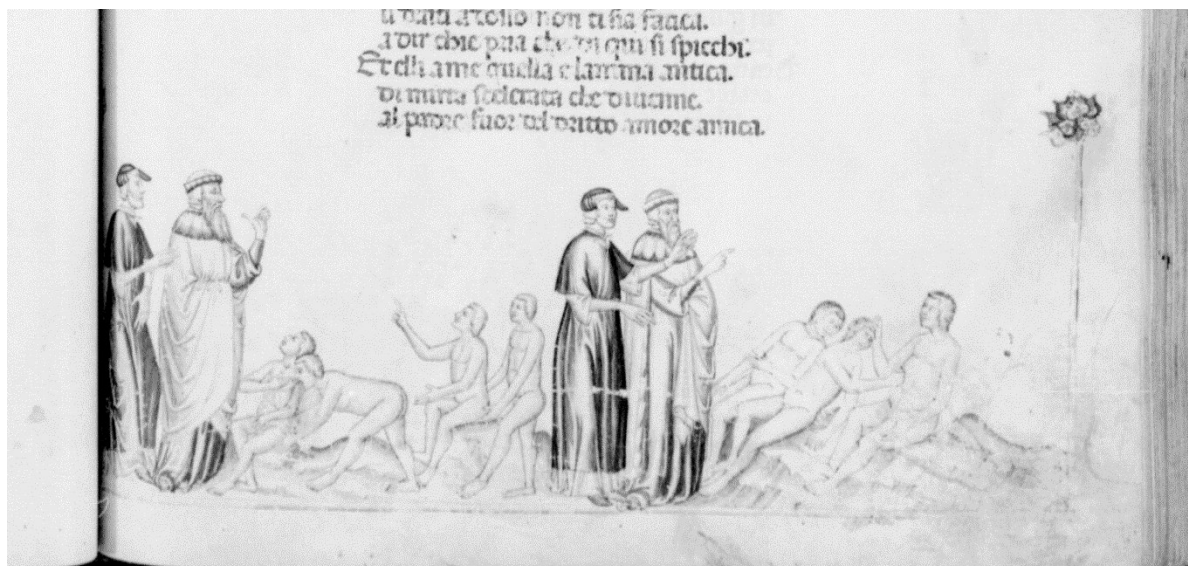 li denti a dosso non ti sia fatica.
a dir chie pria che di qui si spicchi.
Et elli ame quella e lanima antica.
Di mirra scelerata che diuenne.
al padre fuor del dritto amore amica.